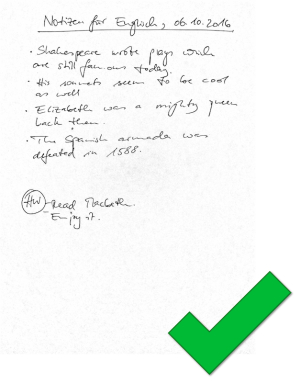 Notizen für Englisch, 06.10.2016
· Shakespeare wrote plays which
are still famous today.
· His sonnets seem to be cool
as well
· Elizabeth was a mighty queen
back then.
· The Spanish armada was
defeated in 1588.
HW Read Macbeth.
Enjoy it.